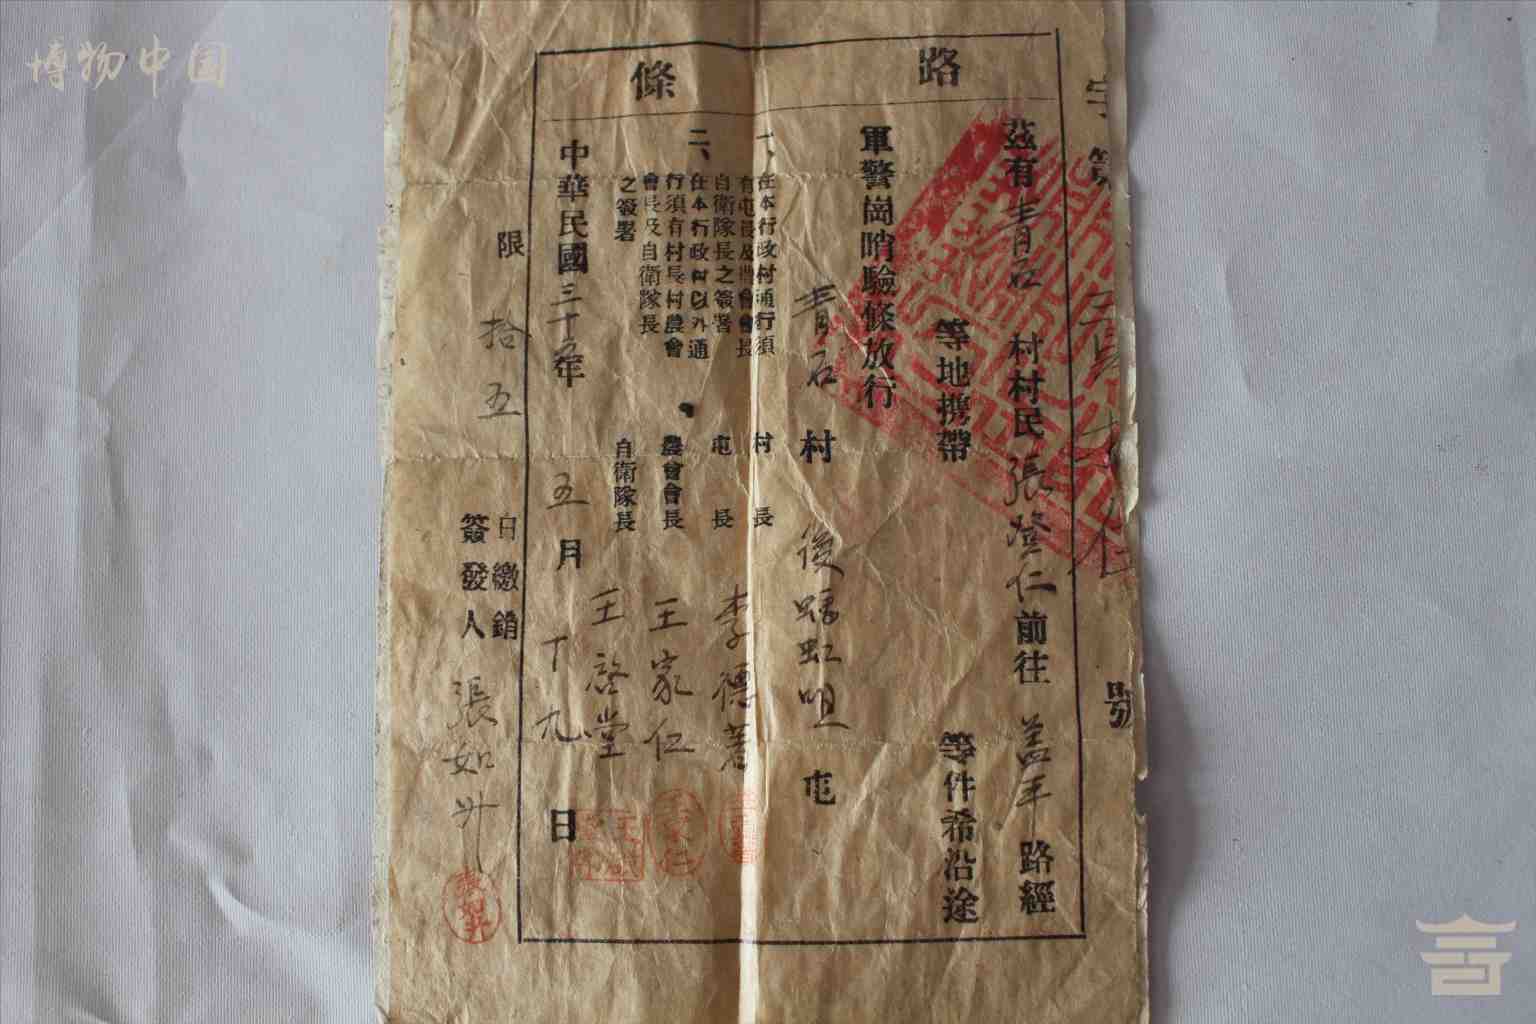 博物中国
路條
字第 號
茲有青石村村民張登仁前往蓋平路經
等地攜帶等件希沿途
軍警崗哨驗條放行
青石村後蝦虹咀屯
一、在本行政村通行須
有屯長及農會會長
自衛隊長之簽署
二、在本行政村以外通
行須有村長村農會
會長及自衛隊長
之簽署
村長
屯長 李德
農會會長 王家仁
自衛隊長 王啓堂
中華民國三十五年五月十九日
限拾五日繳銷
簽發人 張如升